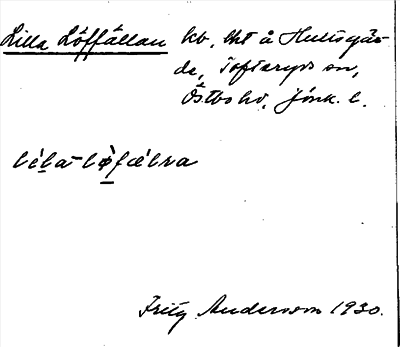 Lilla Löffällan kv, lht å Hultsgår-
de, Tofteryds sn,
Östbo hd, Jönk. l.
lìla-lø̀fælna
Fritz Andersson 1930.